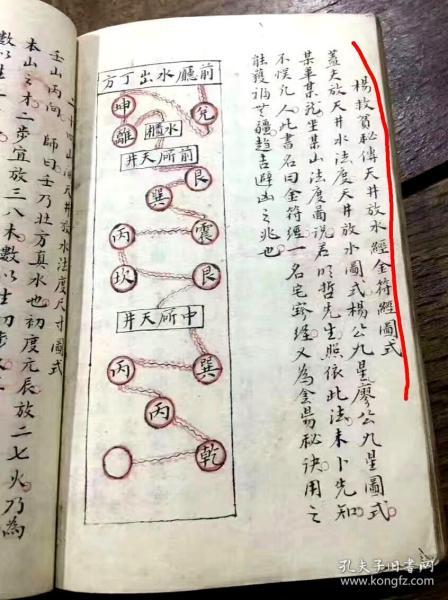 楊救貧秘傳天井放水經金符經圖式
蓋夫放天井水法度天井放水圖式楊公九星廖公九星圖式
某單某龍坐某山法度圖說君明哲先生照依此法未卜先知
不悮九人此書名曰金符經一名宅寶經又為金昜秘訣用之
能獲福無疆趨吉避凶之兆也
前廳水出丁方
坤
兌
離
水櫃
前所天井
艮
巽
震
丙
坎
艮
中所天井
巽
丙
丙
乾
二十四山放天井放水法度尺寸圖式
壬山丙向 師曰壬乃壯方真水也初度元辰放二七火乃為
本山之木二步宜放三八木數以生初步
數以生
孔夫子旧书网
www.kongfz.com